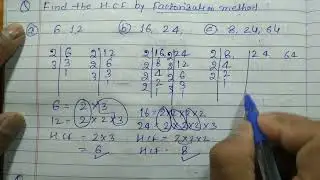 Q Find the HCF by Factorization method:
a) 6, 12 b) 16, 24, c) 8, 24, 64
2 | 6 2 | 12 2 | 16 2 | 24 2 | 8 24 64
3 | 3 2 | 6 2 | 8 2 | 12 2 | 4
1 3 | 3 2 | 4 2 | 6 2 | 2
1 2 | 2 3 | 3 1
1 1
6 = 2 × 3 16 = 2×2×2×2
12 = 2×2×3 24 = 2×2×2×3
HCF = 2×3 HCF = 2×2×2
= 6 HCF = 8